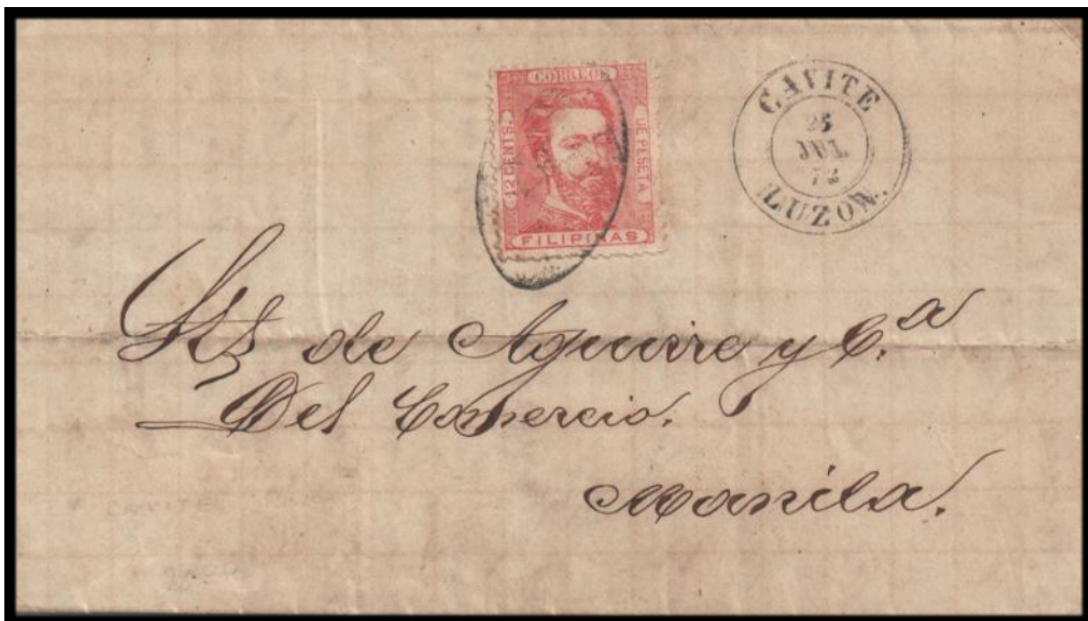 CORREOS
12 CENTS.
DE PESETA
FILIPINAS
CAVITE
25
JUL.
72
LUZON.
Srs de Aguirre y Cª
Del Comercio.
Manila.
CAVITE